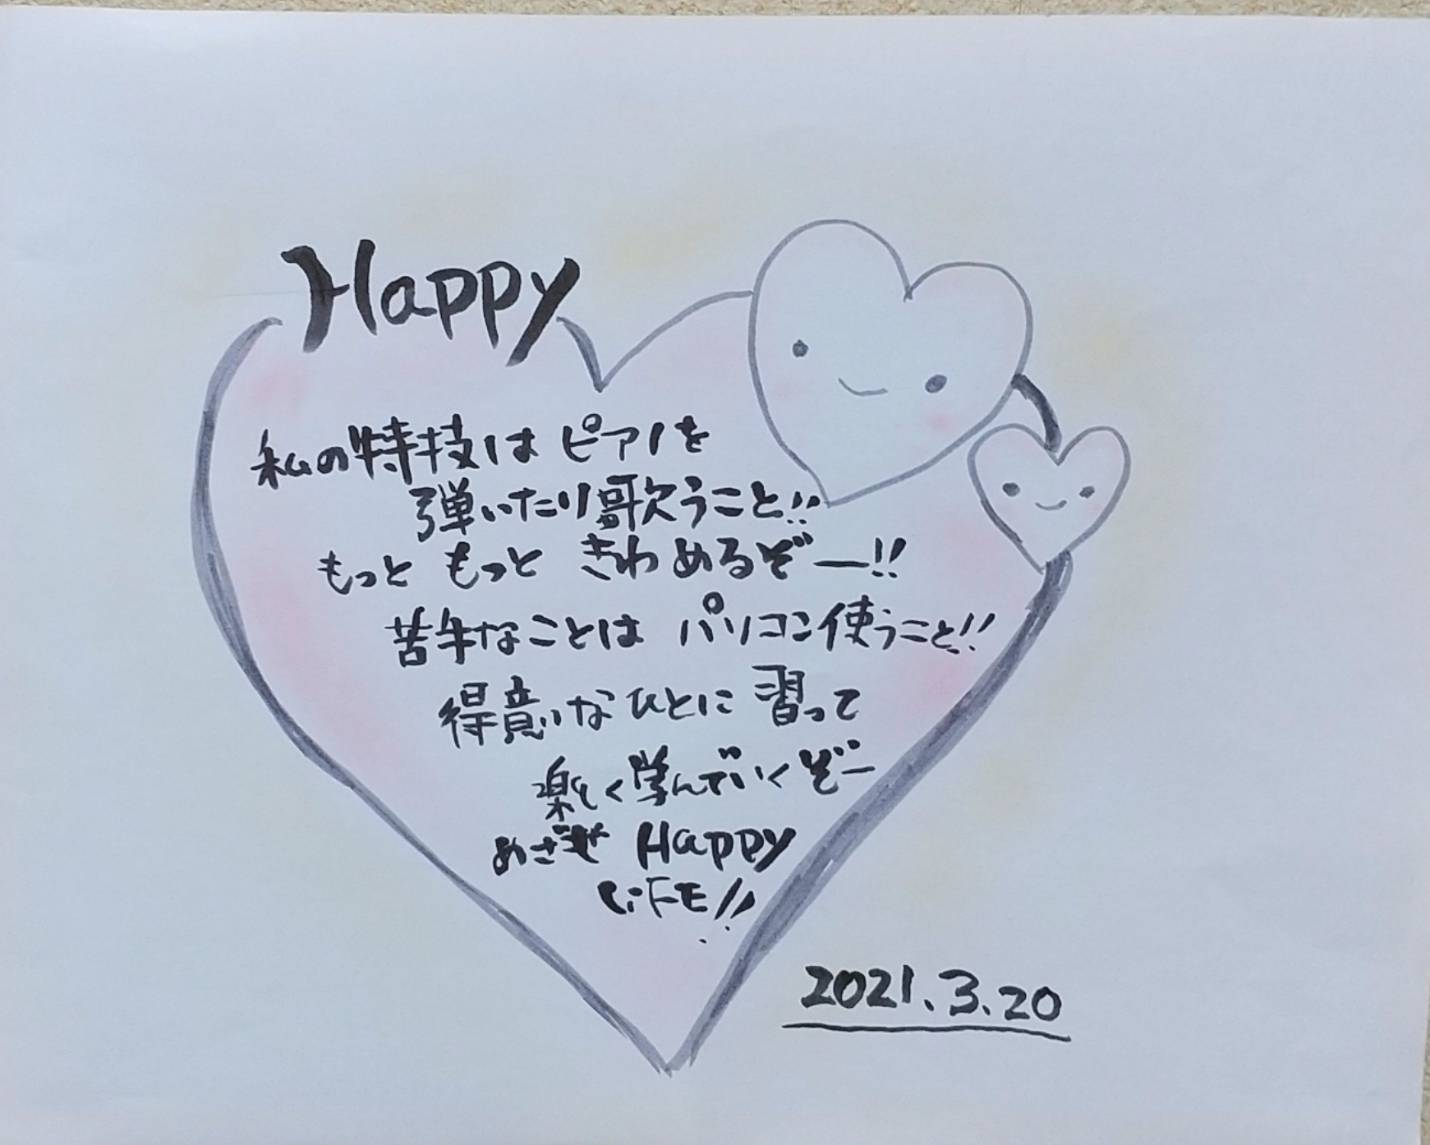 Happy
私の特技はピアノを
弾いたり歌うこと!!
もっと もっと きわめるぞー!!
苦手なことは パソコン使うこと!!
得意なひとに 習って
楽しく学んでいくぞー
めざせ Happy
LiFE!!
2021.3.20